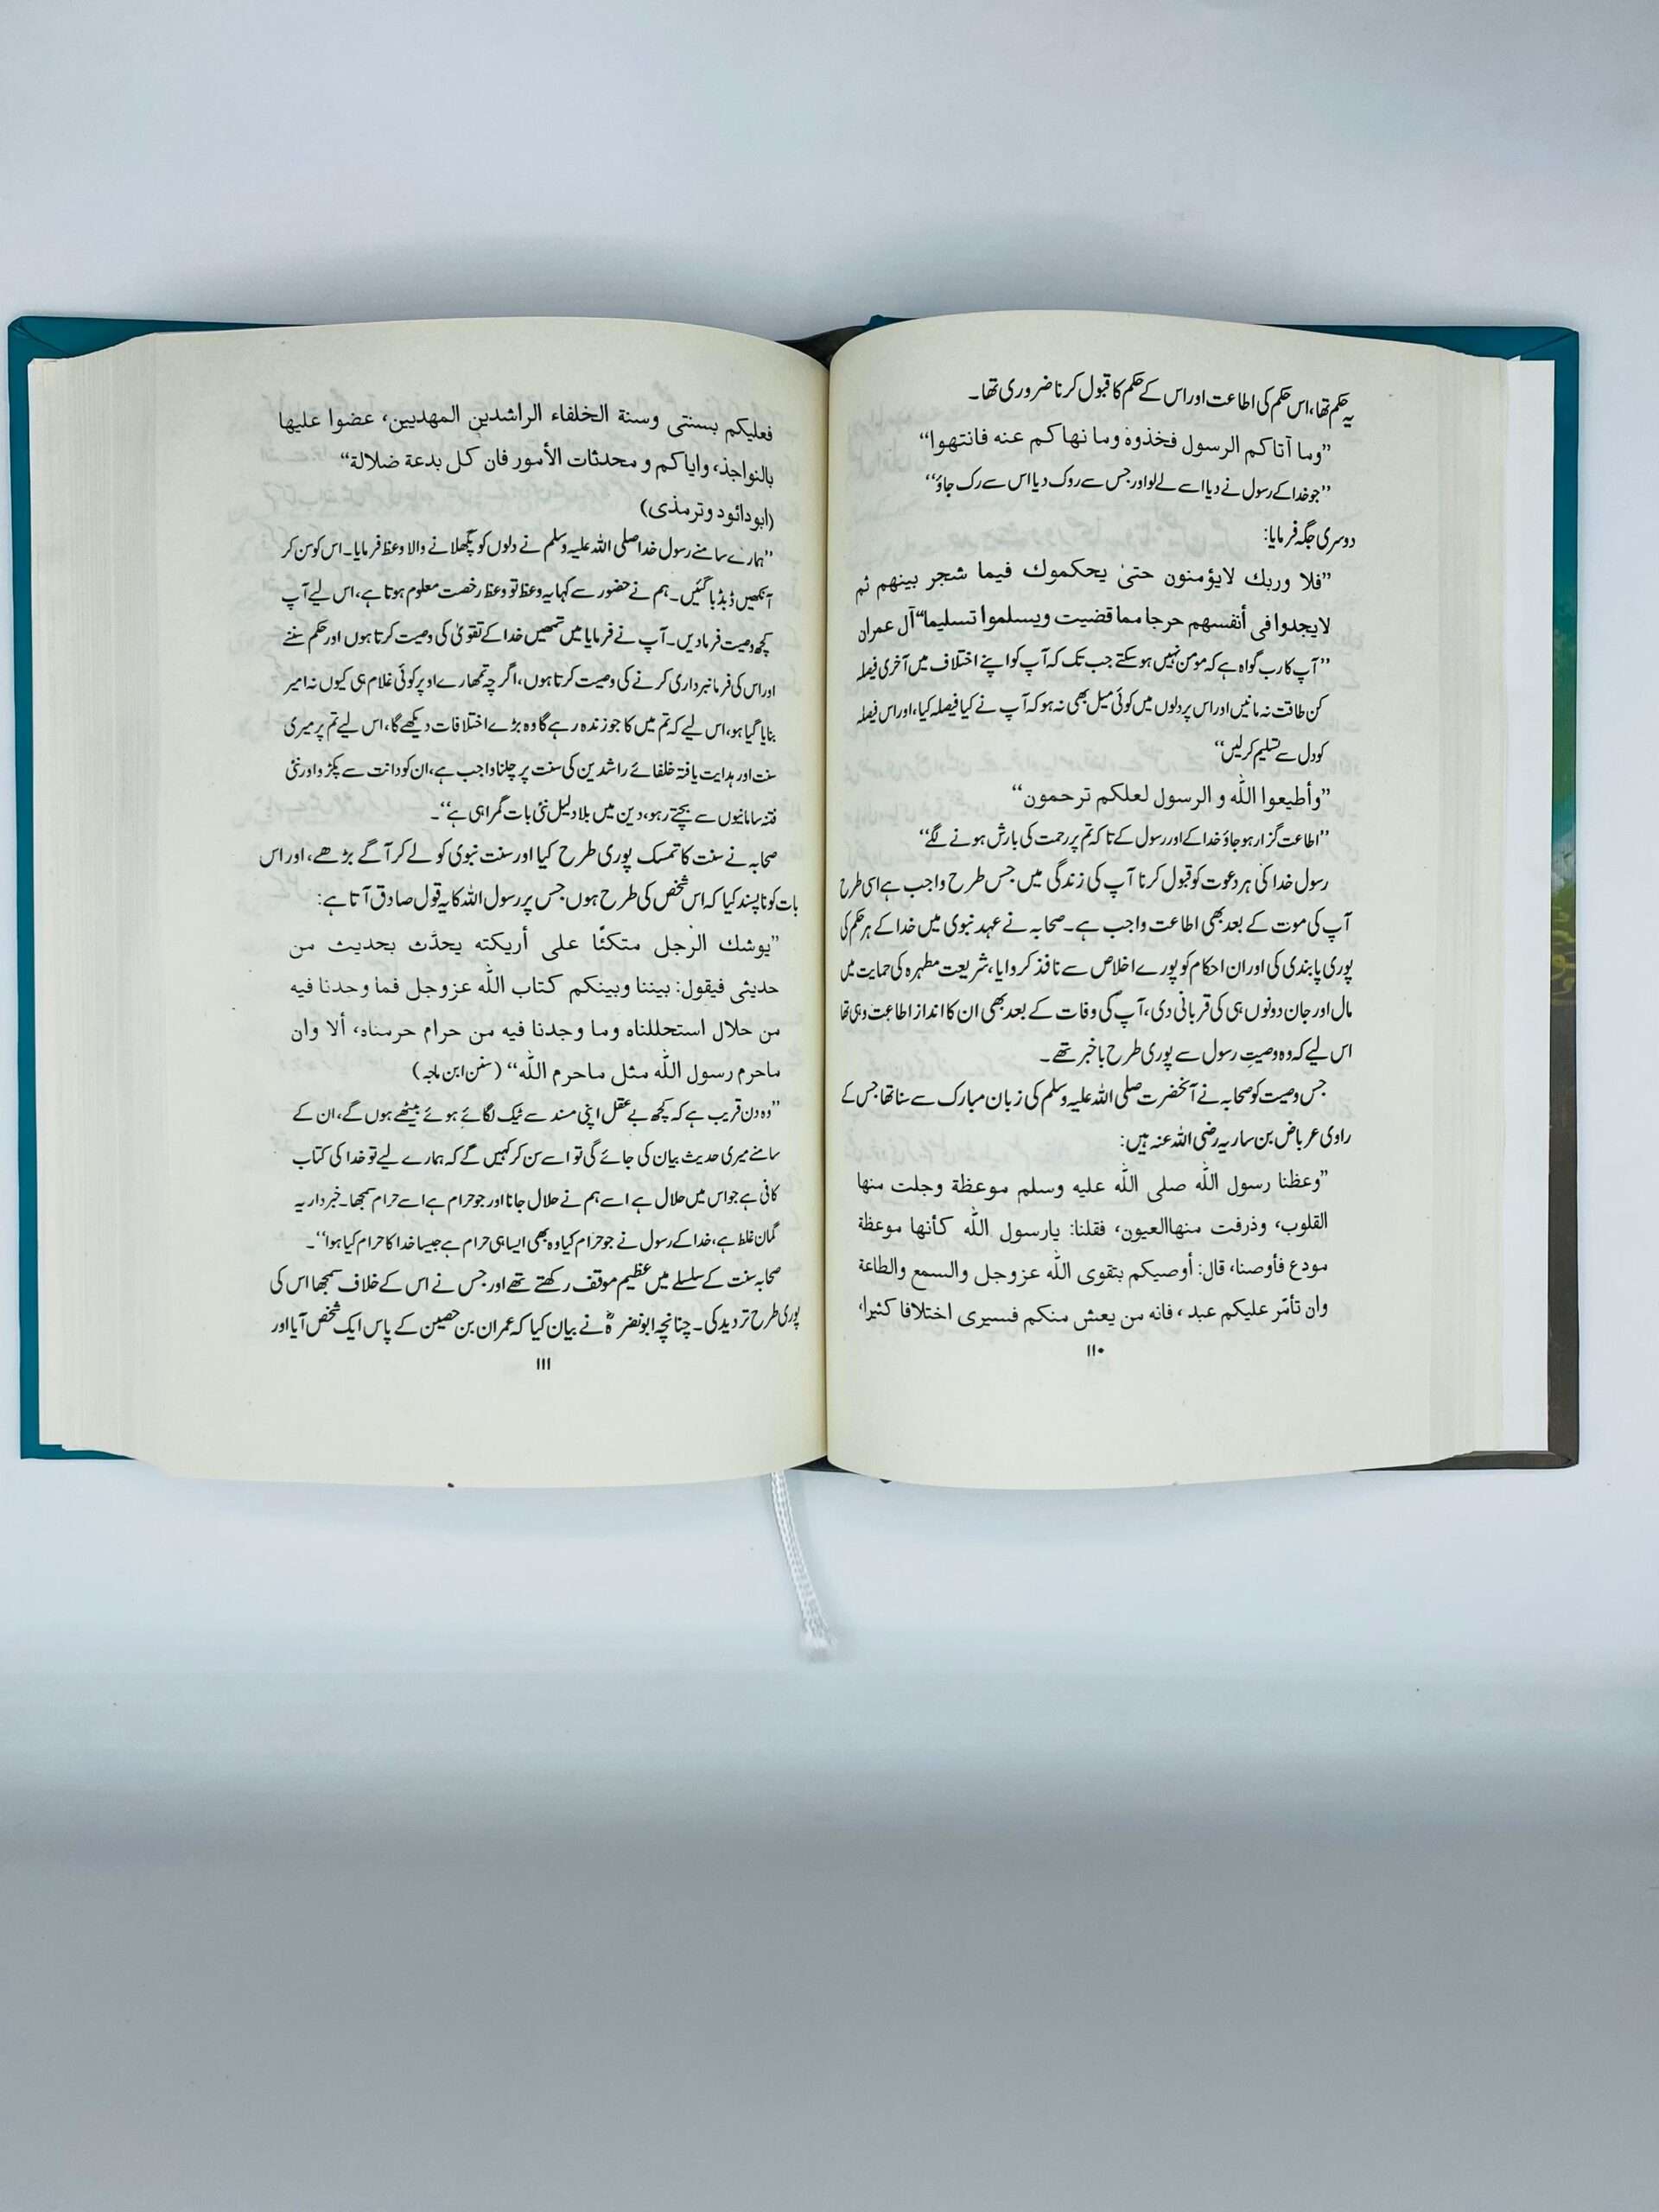 یہ حکم تھا، اس حکم کی اطاعت اور اس کے حکم کا قبول کرنا ضروری تھا۔
”وما آتاكم الرسول فخذوه وما نهاكم عنه فانتهوا“
”جو خدا کے رسول نے دیا اسے لے لو اور جس سے روک دیا اس سے رک جاؤ“
دوسری جگہ فرمایا:
”فلا وربك لايؤمنون حتىٰ يحكموك فيما شجر بينهم ثم
لايجدوا فى أنفسهم حرجا مما قضيت ويسلموا تسليما“ آل عمران
”آپ کا رب گواہ ہے کہ مومن نہیں ہو سکتے جب تک کہ آپ کو اپنے اختلاف میں آخری فیصلہ
کن طاقت نہ مانیں اور اس پر دلوں میں کوئی میل بھی نہ ہو کہ آپ نے کیا فیصلہ کیا، اور اس فیصلہ
کو دل سے تسلیم کرلیں“
”وأطيعوا الله و الرسول لعلكم ترحمون“
”اطاعت گزار ہو جاؤ خدا کے اور رسول کے تاکہ تم پر رحمت کی بارش ہونے لگے“
رسول خدا کی ہر دعوت کو قبول کرنا آپ کی زندگی میں جس طرح واجب ہے اسی طرح
آپ کی موت کے بعد بھی اطاعت واجب ہے۔ صحابہ نے عہد نبوی میں خدا کے ہر حکم کی
پوری پابندی کی اور ان احکام کو پورے اخلاص سے نافذ کروایا، شریعت مطہرہ کی حمایت میں
مال اور جان دونوں ہی کی قربانی دی، آپ کی وفات کے بعد بھی ان کا انداز اطاعت وہی تھا
اس لیے کہ وہ وصیتِ رسول سے پوری طرح باخبر تھے۔
جس وصیت کو صحابہ نے آنحضرت صلی اللہ علیہ وسلم کی زبان مبارک سے سنا تھا جس کے
راوی عرباض بن ساریہ رضی اللہ عنہ ہیں:
”وعظنا رسول الله صلى الله عليه وسلم موعظة وجلت منها
القلوب، وذرفت منها العيون، فقلنا: يارسول الله كأنها موعظة
مودع فأوصنا، قال: أوصيكم بتقوى الله عزوجل والسمع والطاعة
وان تأمّر عليكم عبد، فانه من يعش منكم فسيرى اختلافا كثيرا،
۱۱۰
فعليكم بسنتى وسنة الخلفاء الراشدين المهديين، عضوا عليها
بالنواجذ، واياكم و محدثات الأمور فان كل بدعة ضلالة“
(ابودائود وترمذى)
”ہمارے سامنے رسول خدا صلی اللہ علیہ وسلم نے دلوں کو پگھلانے والا وعظ فرمایا۔ اس کو سن کر
آنکھیں ڈبڈبا گئیں۔ ہم نے حضور سے کہا یہ وعظ تو وعظ رخصت معلوم ہوتا ہے، اس لیے آپ
کچھ وصیت فرما دیں۔ آپ نے فرمایا میں تمھیں خدا کے تقویٰ کی وصیت کرتا ہوں اور حکم سننے
اور اس کی فرمانبرداری کرنے کی وصیت کرتا ہوں، اگرچہ تمھارے اوپر کوئی غلام ہی کیوں نہ امیر
بنایا گیا ہو، اس لیے کہ تم میں کا جو زندہ رہے گا وہ بڑے اختلافات دیکھے گا، اس لیے تم پر میری
سنت اور ہدایت یافتہ خلفائے راشدین کی سنت پر چلنا واجب ہے، ان کو دانت سے پکڑو اور نئی
فتنہ سامانیوں سے بچتے رہو، دین میں بلا دلیل نئی بات گمراہی ہے“۔
صحابہ نے سنت کا تمسک پوری طرح کیا اور سنت نبوی کو لے کر آگے بڑھے، اور اس
بات کو نا پسند کیا کہ اس شخص کی طرح ہوں جس پر رسول اللہ کا یہ قول صادق آتا ہے:
”يوشك الرجل متكئًا على أريكته يحدَّث بحديث من
حديثى فيقول: بيننا وبينكم كتاب الله عزوجل فما وجدنا فيه
من حلال استحللناه وما وجدنا فيه من حرام حرمناه، ألا وان
ماحرم رسول الله مثل ماحرم الله“ (سنن ابن ماجہ)
”وہ دن قریب ہے کہ کچھ بے عقل اپنی مسند سے ٹیک لگائے ہوئے بیٹھے ہوں گے، ان کے
سامنے میری حدیث بیان کی جائے گی تو اسے سن کر کہیں گے کہ ہمارے لیے تو خدا کی کتاب
کافی ہے جو اس میں حلال ہے اسے ہم نے حلال جانا اور جو حرام ہے اسے حرام سمجھا۔ خبردار یہ
گمان غلط ہے، خدا کے رسول نے جو حرام کیا وہ بھی ایسا ہی حرام ہے جیسا خدا کا حرام کیا ہوا“۔
صحابہ سنت کے سلسلے میں عظیم موقف رکھتے تھے اور جس نے اس کے خلاف سمجھا اس کی
پوری طرح تردید کی۔ چنانچہ ابونضرہ نے بیان کیا کہ عمران بن حصین کے پاس ایک شخص آیا اور
۱۱۱